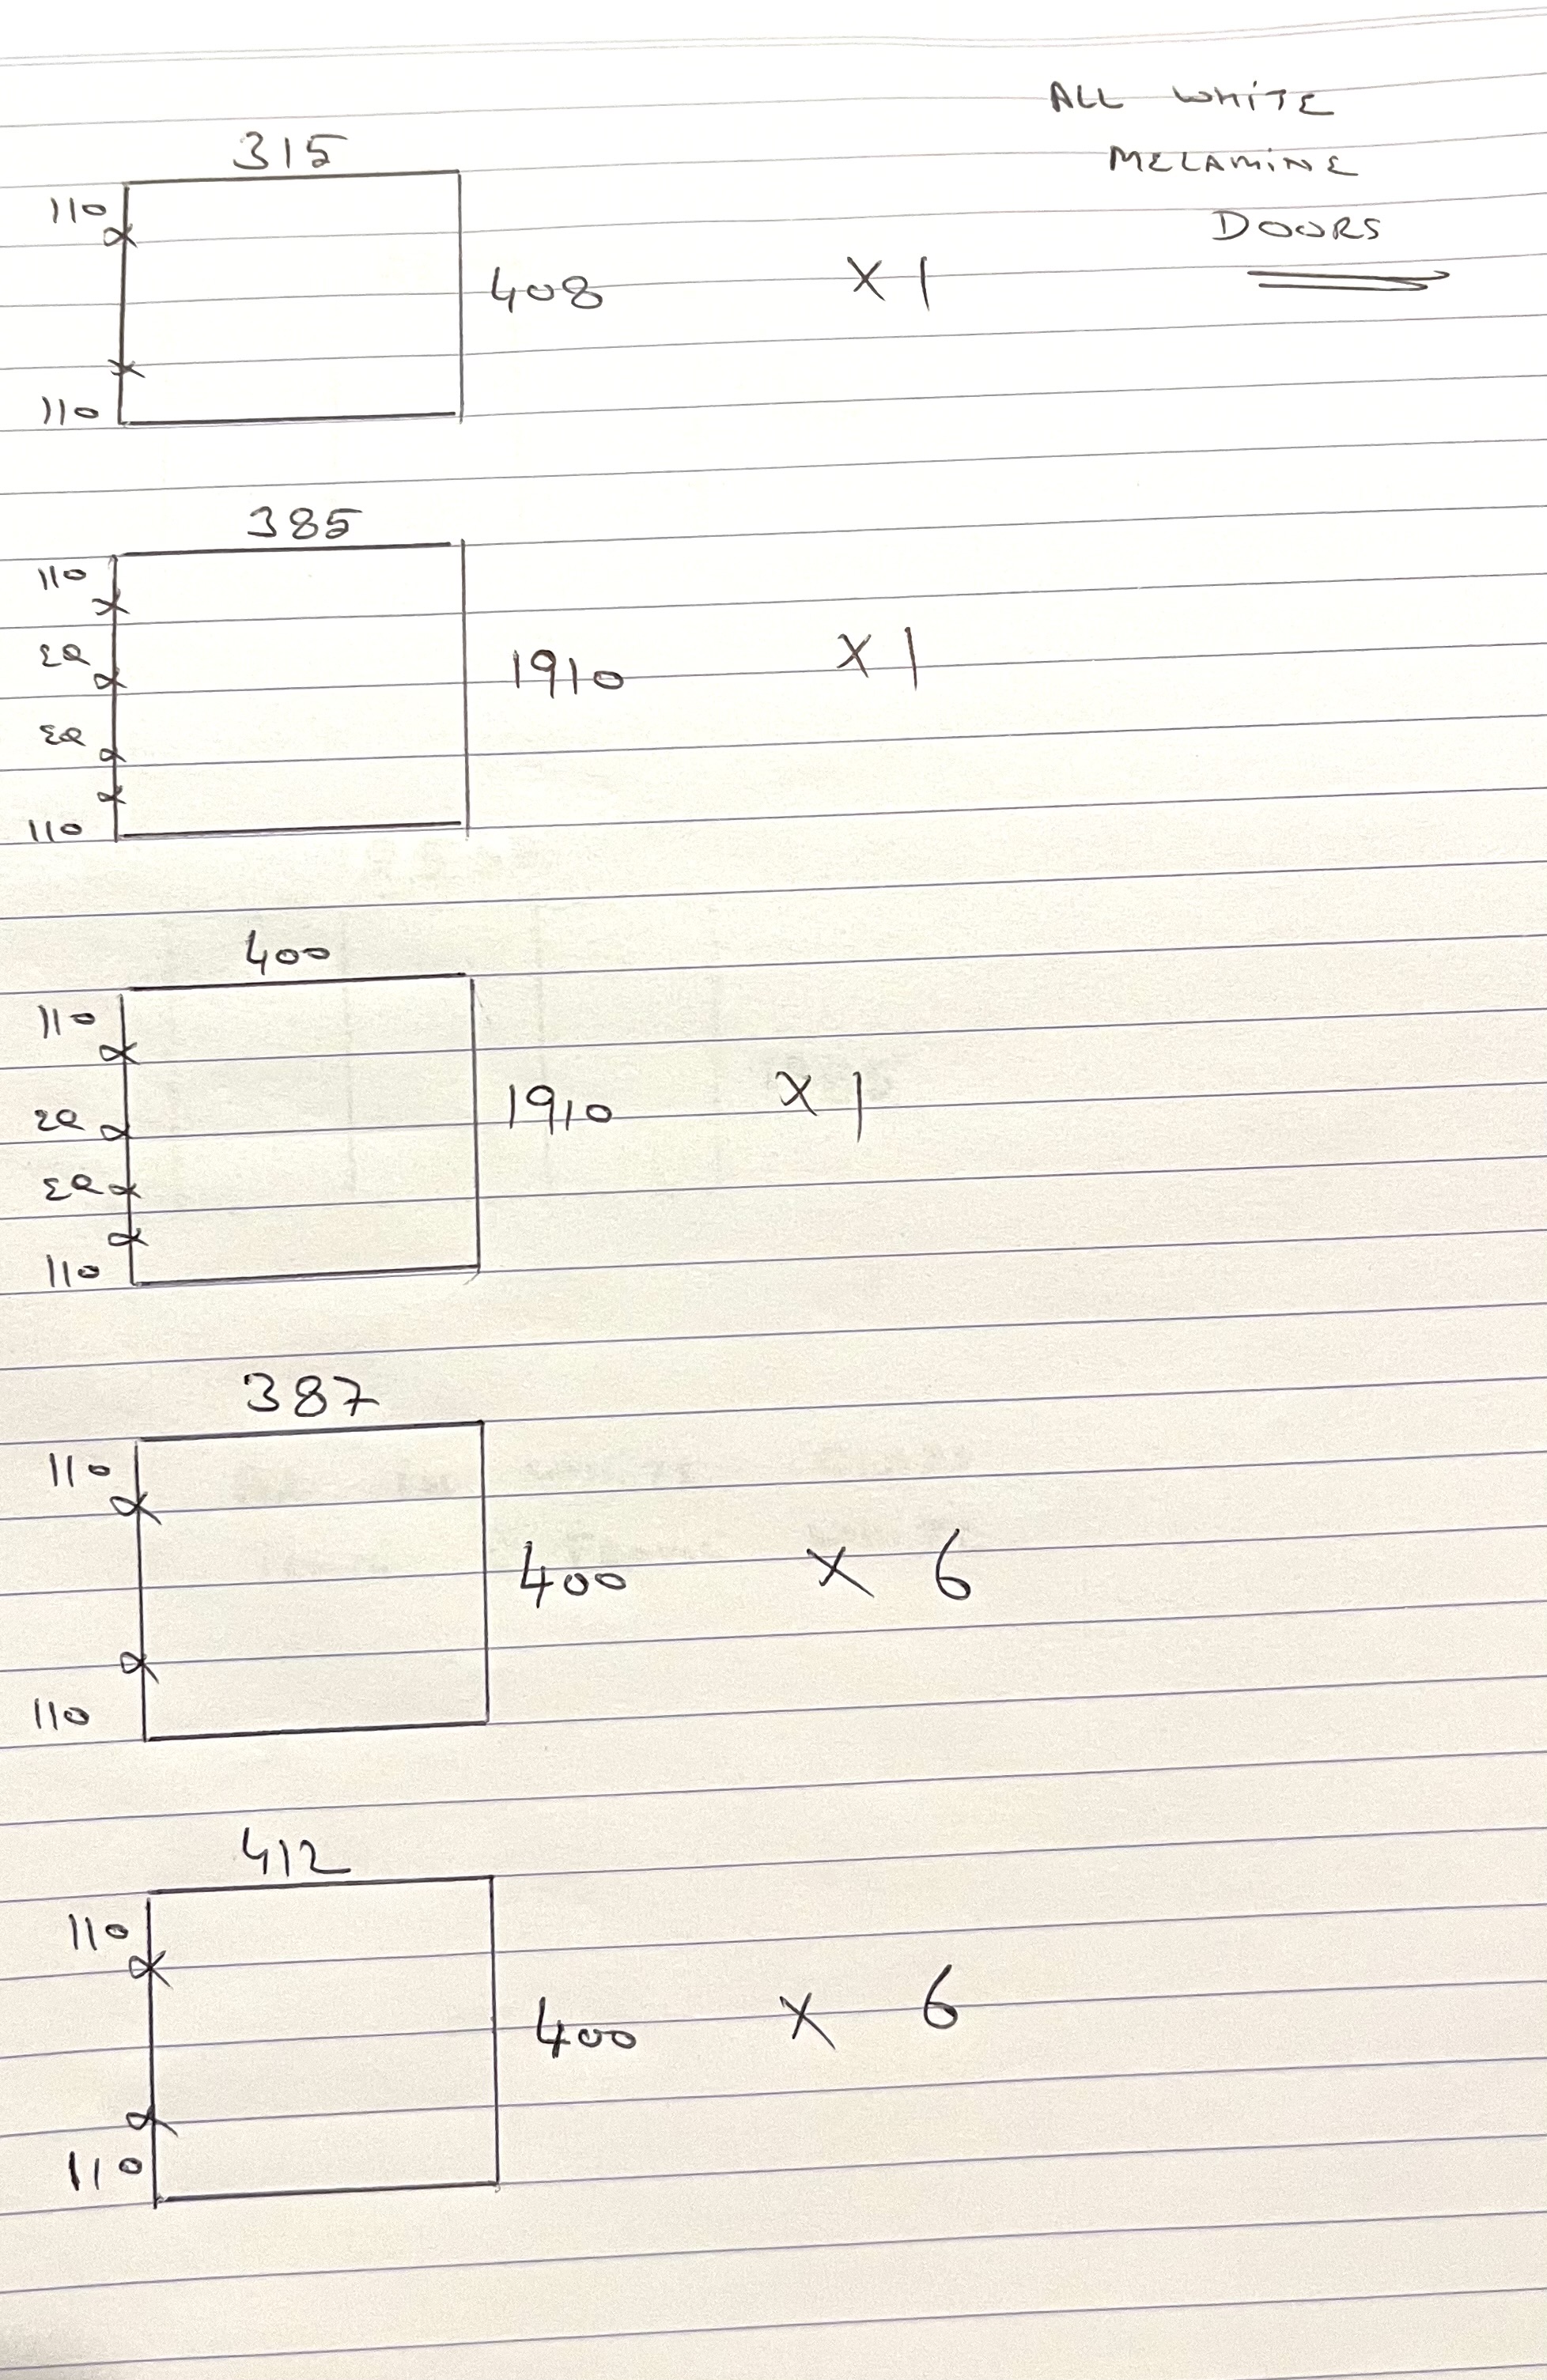 ALL WHITE
MELAMINE
DOORS
315
110
408 X 1
110
385
110
EQ
1910 X 1
EQ
110
400
110
EQ
1910 X 1
EQ
110
387
110
400 X 6
110
412
110
400 X 6
110